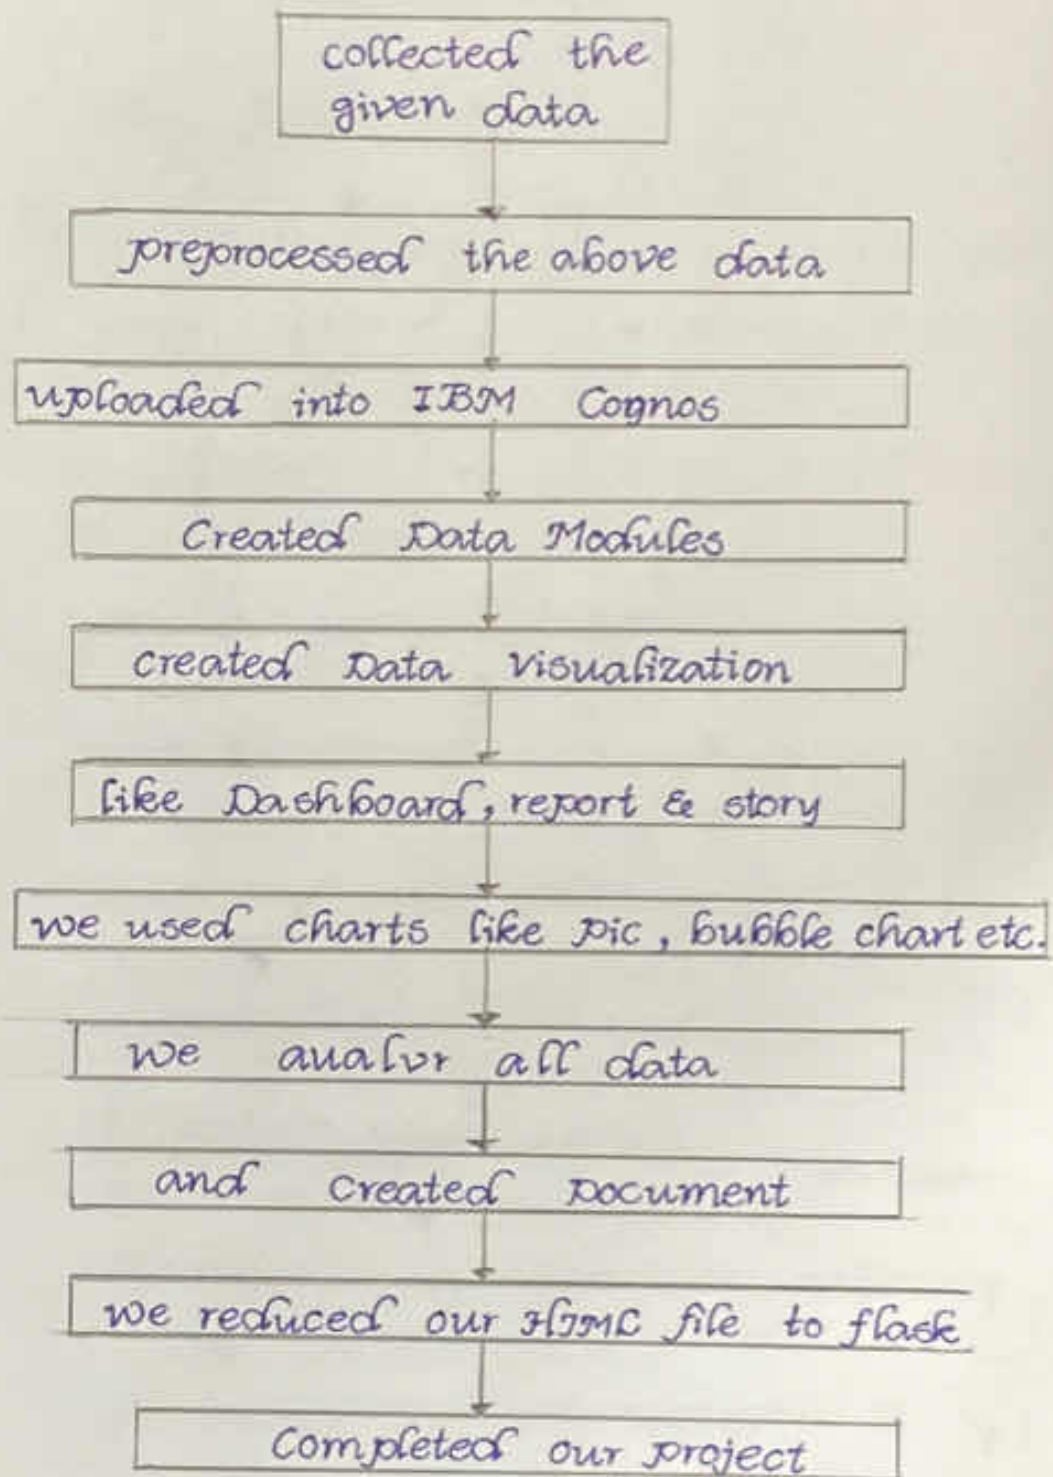 collected the
given data
preprocessed the above data
uploaded into IBM Cognos
Created Data Modules
created Data visualization
like Dashboard, report & story
we used charts like pic, bubble chart etc.
we aualvr all data
and created Document
we reduced our HTML file to flask
Completed our project